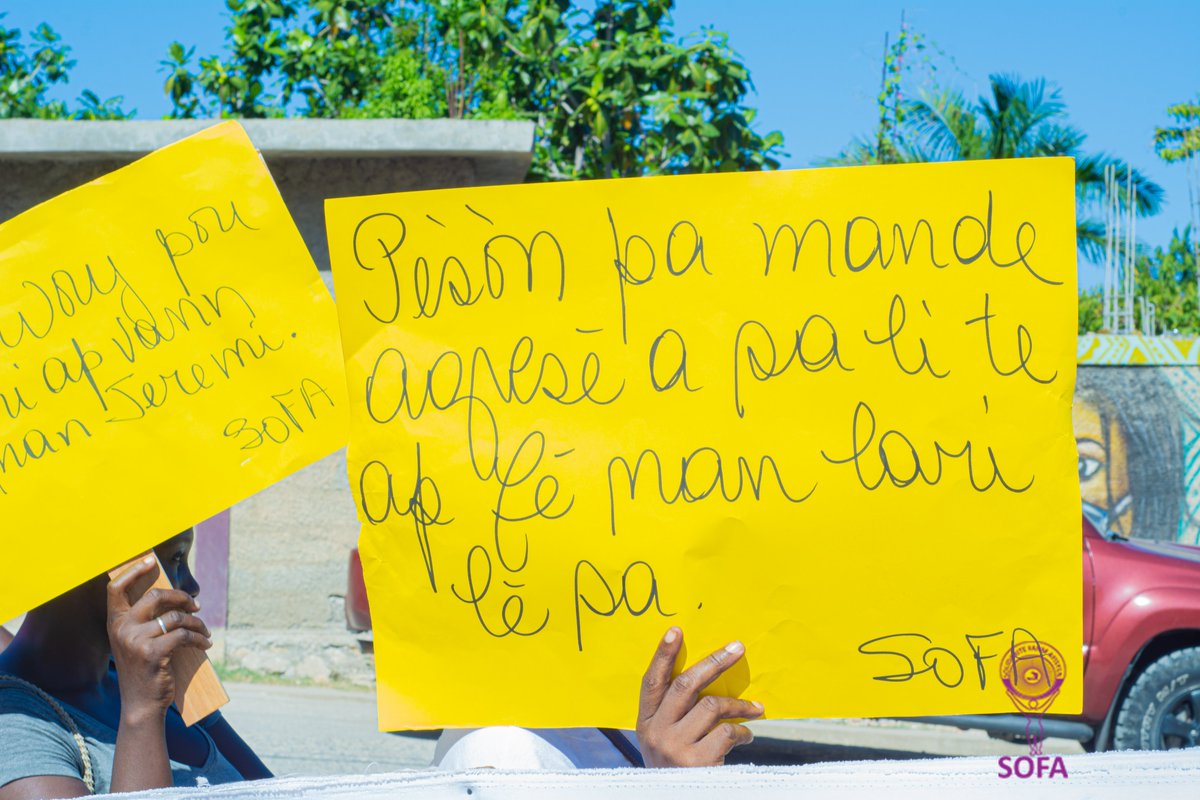 woy pou
ap vann
nan Jeremi.
SOFA
Pèsòn pa mande
agresè a pa li te
ap fè nan lari
lè pa.
SOFA
SOFA